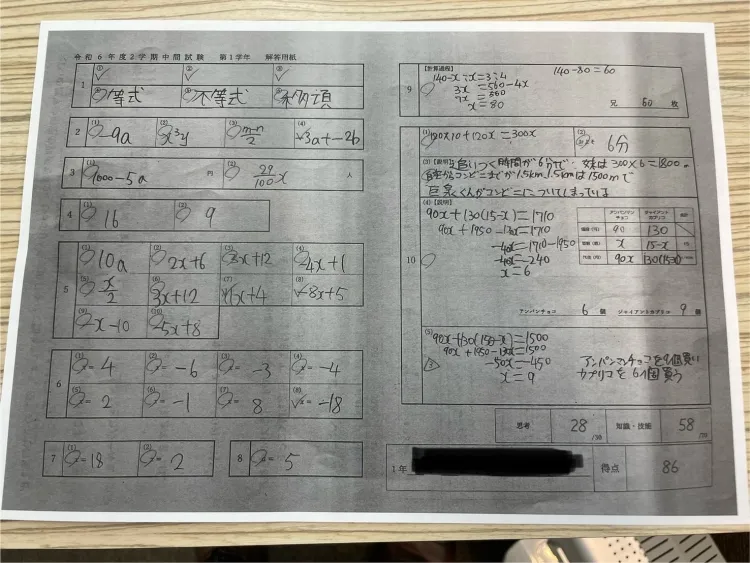 令和6年度2学期中間試験 第1学年 解答用紙
1
① ② ③
④ 等式 ⑤ 不等式 ⑥ 移項
2
(1) -9a (2) x³y (3) (4) -3a+-2b
3
(1) 1000-5a 円 (2) 29/100 x 人
4
(1) 16 (2) 9
5
(1) 10a (2) 2x+6 (3) 3x+12 (4) 4x+1
(5) x/2 (6) 3x+12 (7) x+4 (8) -8x+5
(9) -x-10 (10) 5x+8
6
(1) x= 4 (2) x= -6 (3) x= -3 (4) x= -4
(5) x= 2 (6) x= -1 (7) x= 8 (8) x= -18
7
(1) x= 18 (2) x= 2
8
a= 5
9
【計算過程】
140-x:x=3:4
3x=560-4x
7x=560
x=80
140-80=60
兄 60 枚
10
(1) 180×10+120x=300x
(2) 6分
(3)【説明】追いつく時間が6分で、妹は300×6=1800m
コンビニまでが1.5km 1.5kmは1500mで
巨泉くんがコンビニについてしまっている
(4)【説明】
90x+130(15-x)=1710
90x+1950-130x=1710
-40x=1710-1950
-40x=-240
x=6
アンパンマンチョコ ジャイアントカプリコ 合計
90 130
x 15-x 15
90x 130(15-x)
アンパンチョコ 6 個 ジャイアントカプリコ 9 個
(5)
90x+130(15-x)=1500
90x+1950-130x=1500
-50x=-450
x=9
3
アンパンマンチョコを9個買い
カプリコを6個買う
思考 28/30 知識・技能 58/70
1年 得点 86